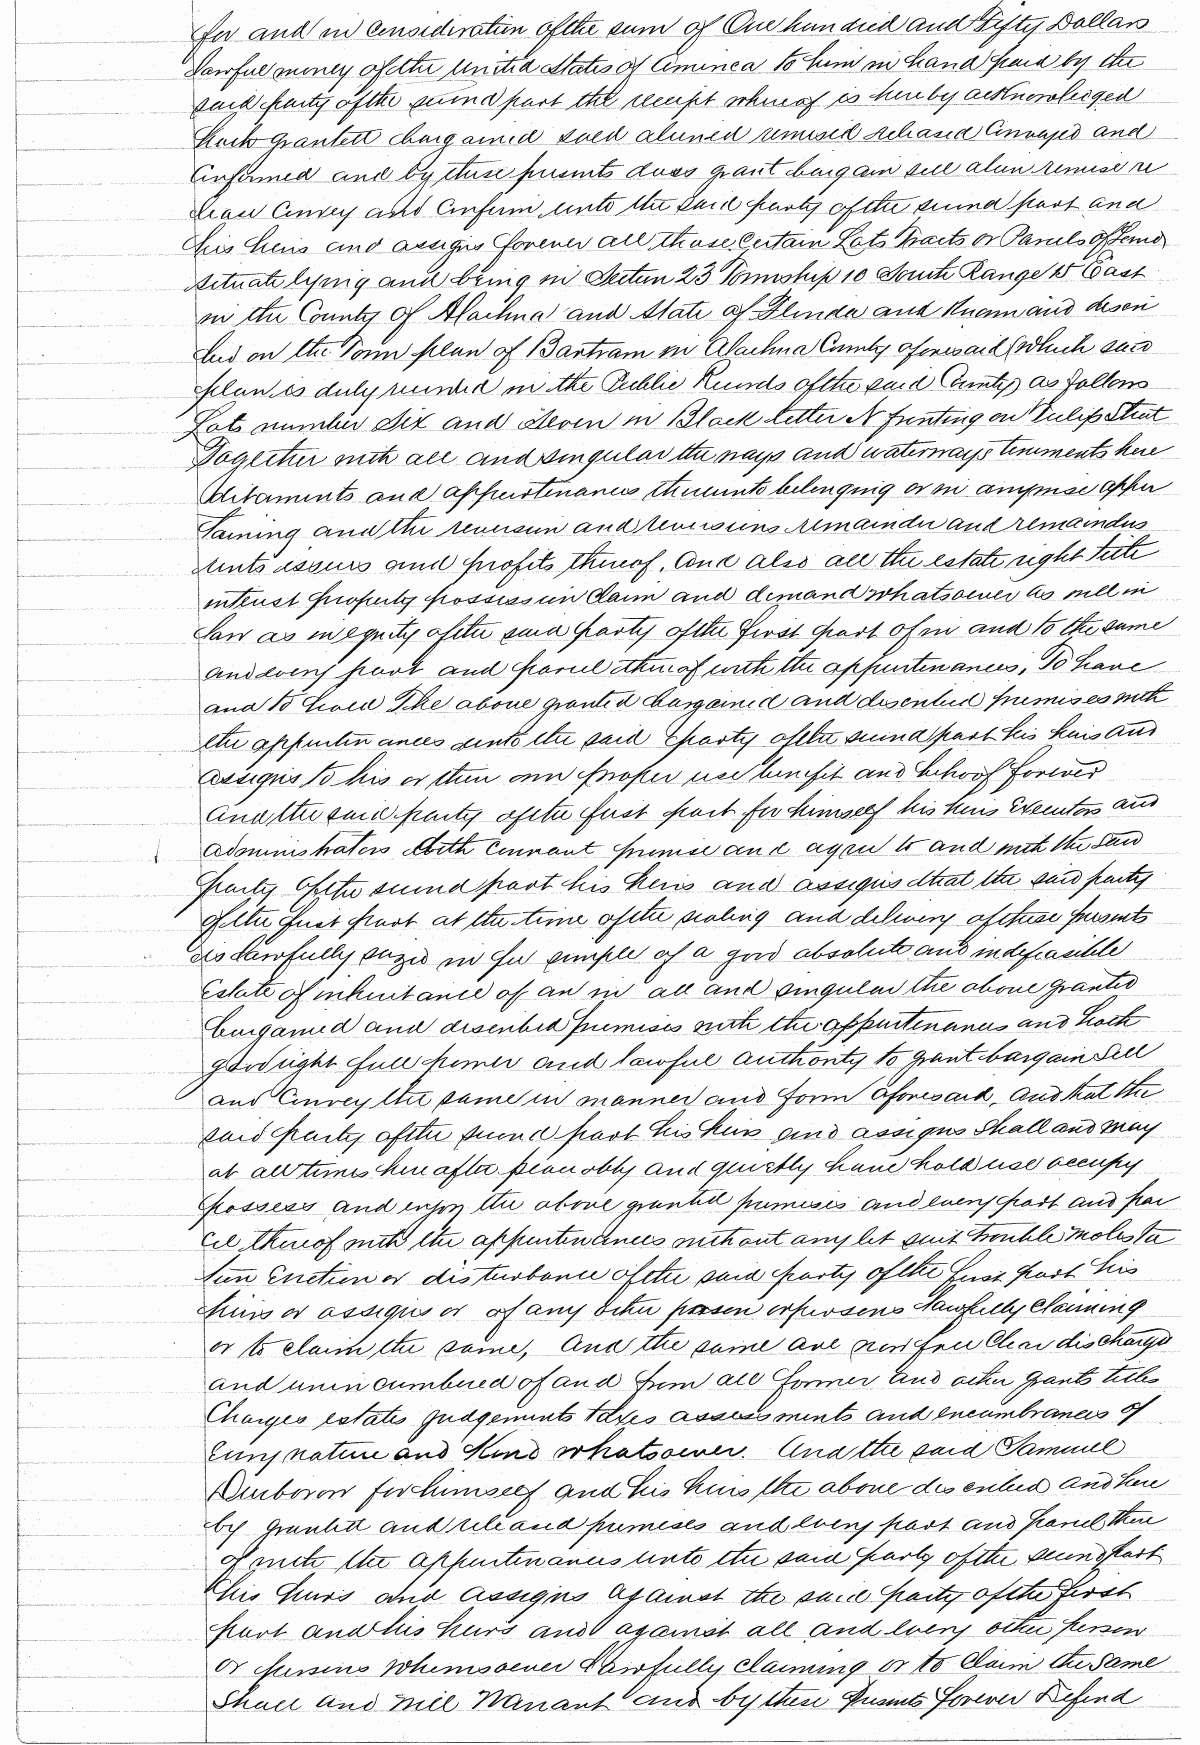 for and in consideration of the sum of One hundred and Fifty Dollars
lawful money of the United States of America to him in hand paid by the
said party of the second part the receipt whereof is hereby acknowledged
Hath granted bargained sold aliened remised released Conveyed and
Confirmed and by these presents does grant bargain sell alien remise re
lease Convey and Confirm unto the said party of the second part and
his heirs and assigns forever all those Certain Lots Tracts or Parcels of Land
situate lying and being in Section 23 Township 10 South Range 18 East
in the County of Alachua and State of Florida and Known and descri
bed on the Town plan of Bartram in Alachua County aforesaid (which said
plan is duly recorded in the Public Records of the said County) as follows
Lots number Six and Seven in Block letter N fronting on Tulip Street
Together with all and singular the ways and waterways tenements here
ditaments and appurtenances thereunto belonging or in anywise apper
taining and the reversion and reversions remainder and remainders
rents issues and profits thereof. And also all the estate right title
interest property possession Claim and demand whatsoever as well in
law as in equity of the said party of the first part of in and to the same
and every part and parcel thereof with the appurtenances, To have
and to hold The above granted bargained and described premises with
the appurtenances unto the said party of the second part his heirs and
assigns to his or their own proper use benefit and behoof forever
And the said party of the first part for himself his heirs Executors and
administrators doth Covenant promise and agree to and with the said
party of the second part his heirs and assigns that the said party
of the first part at the time of the sealing and delivery of these presents
is lawfully seized in fee simple of a good absolute and indefeasible
Estate of inheritance of an in all and singular the above granted
bargained and described premises with the appurtenances and hath
good right full power and lawful authority to grant bargain Sell
and Convey the same in manner and form aforesaid, And that the
said party of the second part his heirs and assigns Shall and may
at all times hereafter peaceably and quietly have hold use occupy
possess and enjoy the above granted premises and every part and par
cel thereof with the appurtenances without any let suit trouble molesta
tion Eviction or disturbance of the said party of the first part his
heirs or assigns or of any other person or persons lawfully Claiming
or to claim the same, And the same are now free Clear discharge
and unincumbered of and from all former and other grants titles
Charges estates judgements taxes assessments and encumbrances of
Every nature and Kind whatsoever. And the said Samuel
for himself and his heirs the above described and here
by granted and released premises and every part and parcel there
of with the appurtenances unto the said party of the second part
his heirs and assigns against the said party of the first
part and his heirs and against all and every other person
or persons whomsoever Lawfully claiming or to Claim the same
Shall and Will Warrant and by these Presents forever Defend